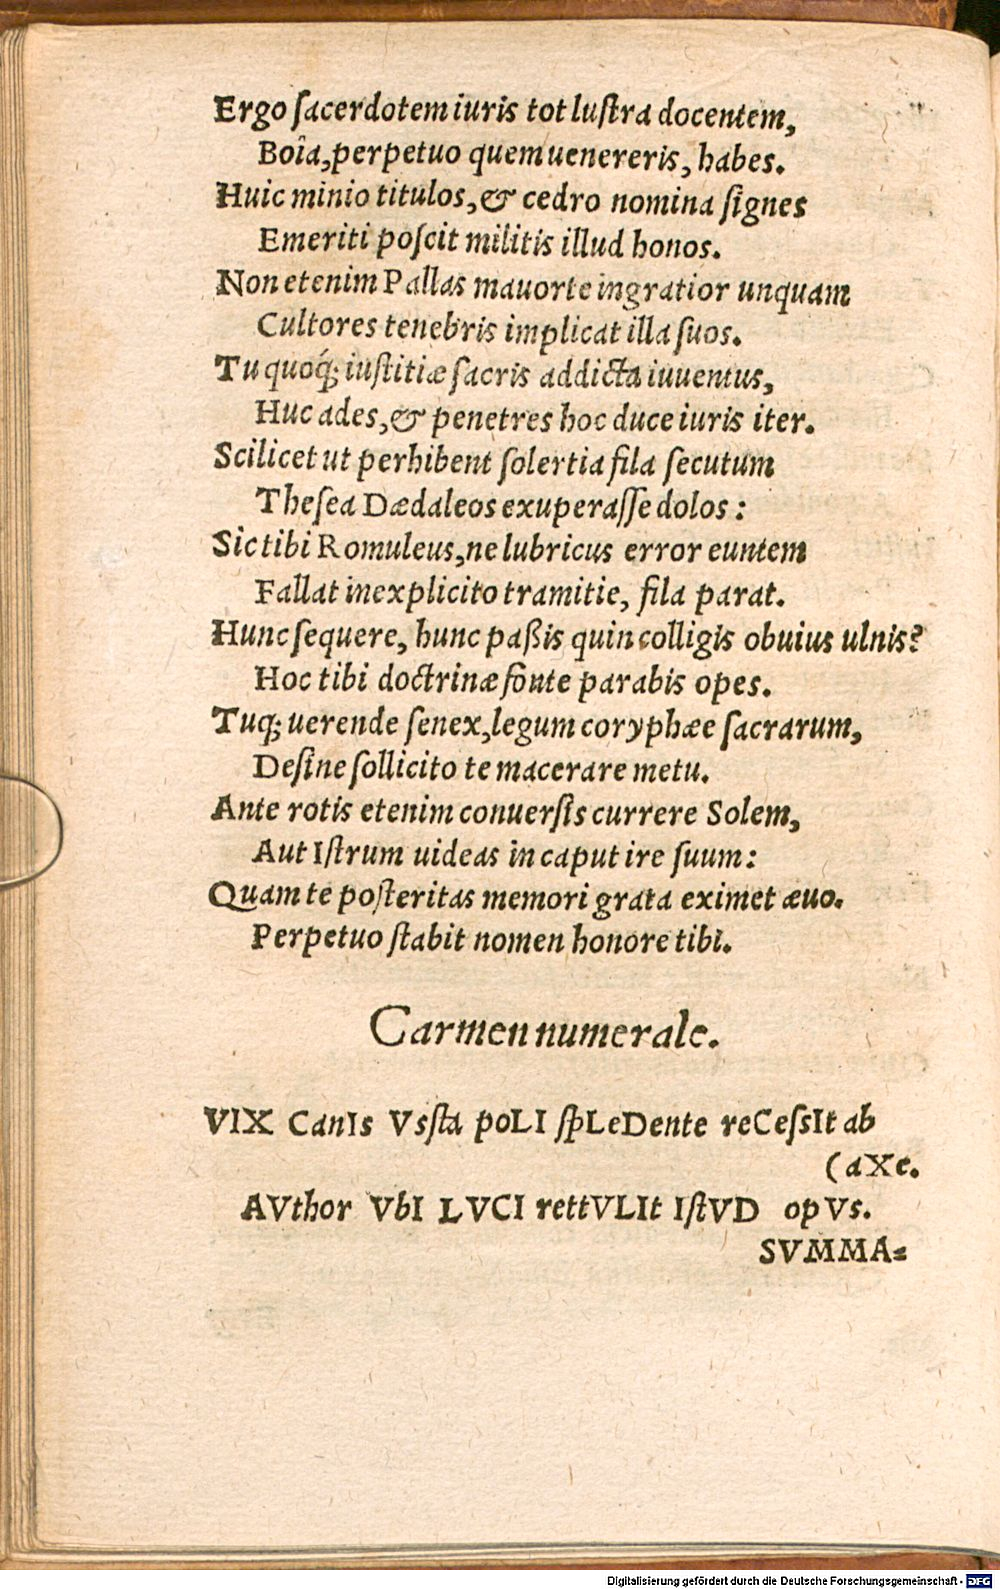 Ergo ſacerdotem iuris tot luſtra docentem,
Boîa, perpetuo quem uenereris, habes.
Huic minio titulos, & cedro nomina ſignes
Emeriti poſcit militis illud honos.
Non etenim Pallas mauorte ingratior unquam
Cultores tenebris implicat illa ſuos.
Tu quoq́; iuſtitiæ ſacris addicta iuuentus,
Huc ades, & penetres hoc duce iuris iter.
Scilicet ut perhibent ſolertia fila ſecutum
Theſea Dædaleos exuperaſſe dolos:
Sic tibi Romuleus, ne lubricus error euntem
Fallat inexplicito tramitie, fila parat.
Hunc ſequere, hunc paßis quin colligis obuius ulnis?
Hoc tibi doctrinæ fonte parabis opes.
Tuq; uerende ſenex, legum coryphæe ſacrarum,
Deſine ſollicito te macerare metu.
Ante rotis etenim conuerſis currere Solem,
Aut Iſtrum uideas in caput ire ſuum:
Quam te poſteritas memori grata eximet æuo.
Perpetuo ſtabit nomen honore tibi.
Carmen numerale.
VIX CanIs Vsſta poLI ſpLeDente reCeſsIt ab
(aXe.
AVthor VbI LVCI rettVLIt IſtVD opVs.
SVMMA=
Digitalisierung gefördert durch die Deutsche Forschungsgemeinschaft - DFG